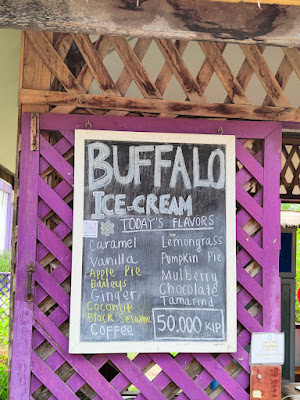 BUFFALO
ICE-CREAM
TODAY'S FLAVORS
Caramel
Vanilla
Apple Pie
Baileys
Ginger
Coconut
Black Sesame
Coffee
Lemongrass
Pumpkin Pie
Mulberry
Chocolate
Tamarind
50.000 KIP